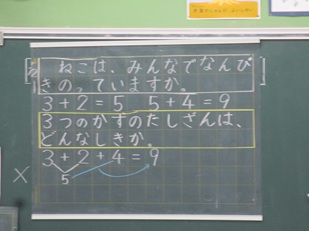 ねこは、みんなでなんび
きのっていますか。
3+2=5 5+4=9
3つのかずのたしざんは、
どんなしきか。
3+2+4=9
5